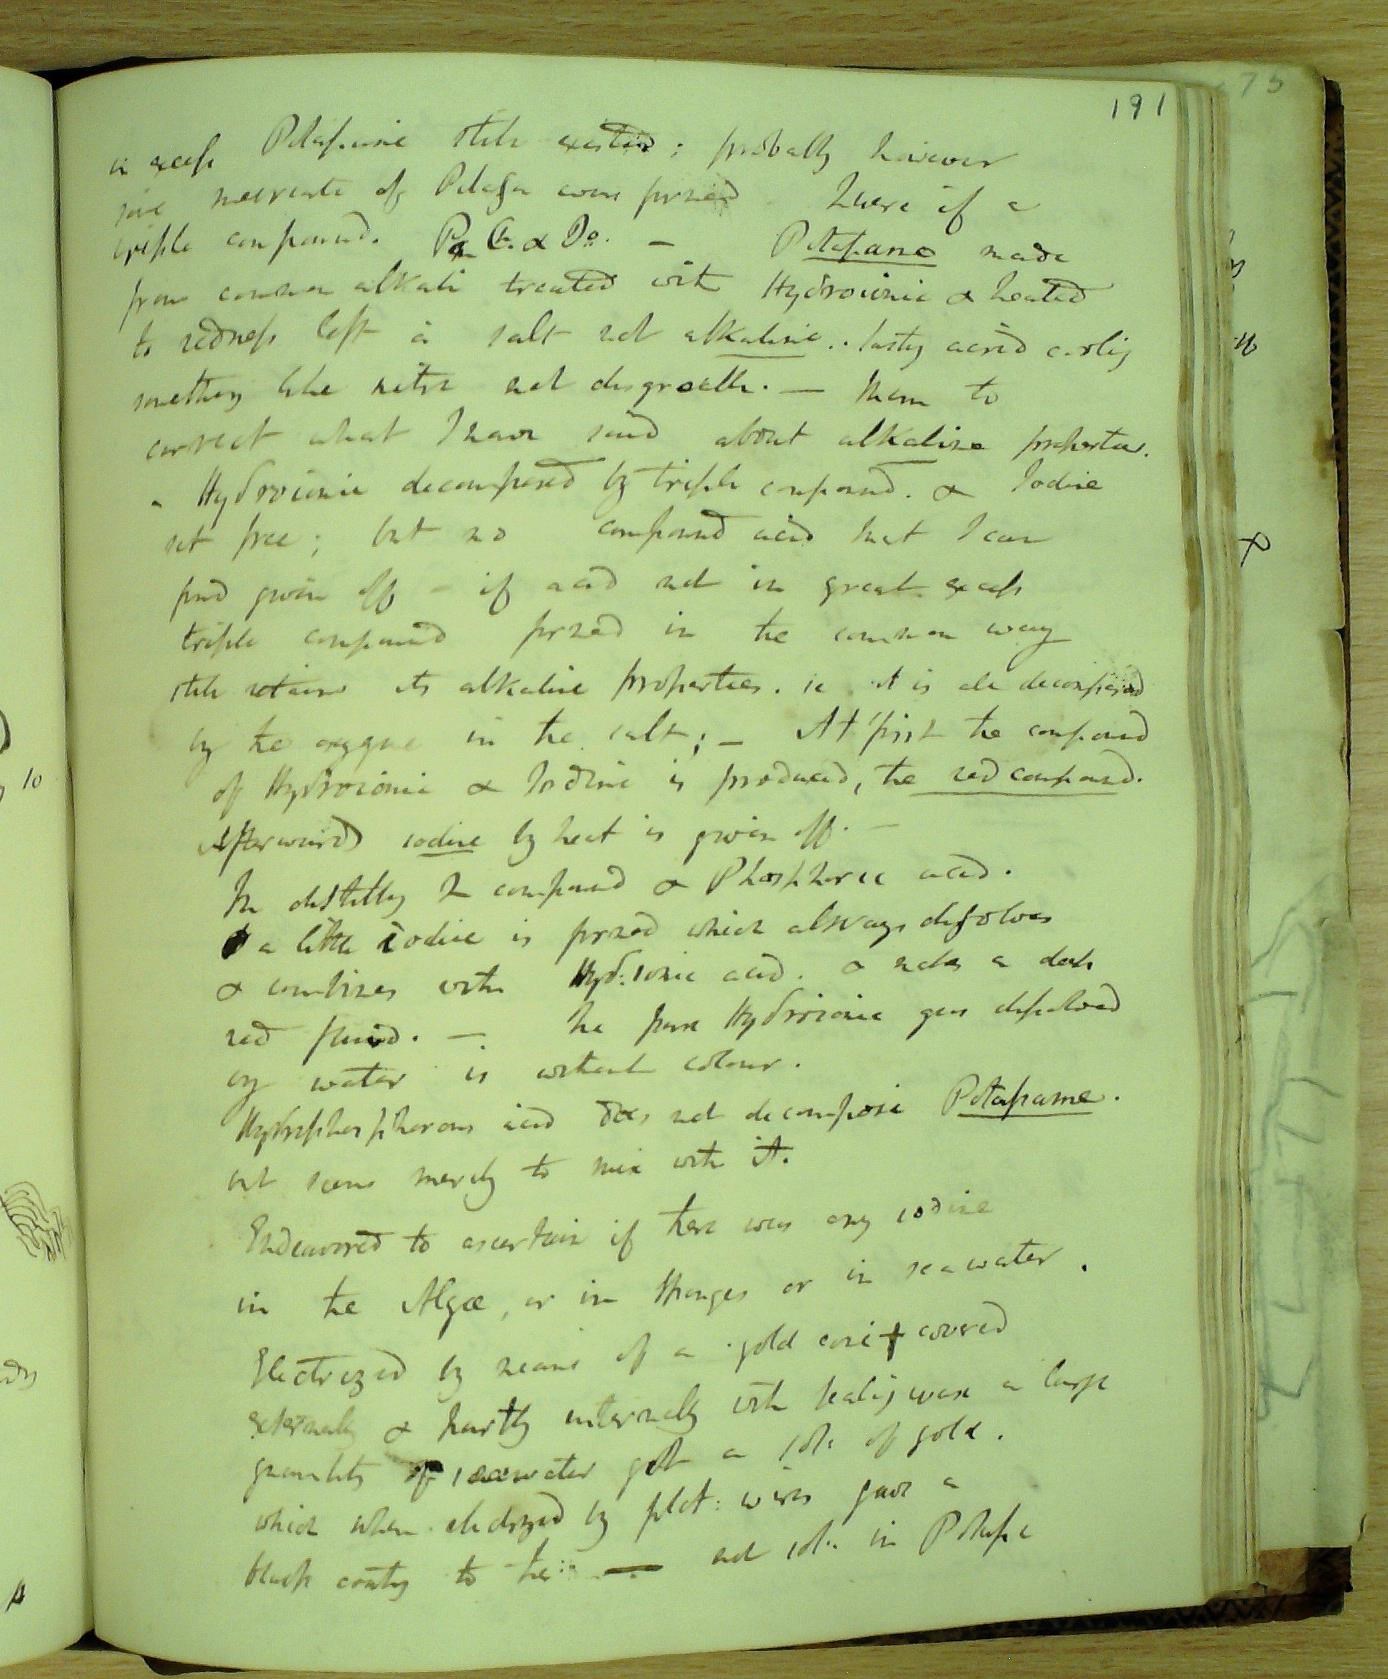 191
in excess Potassane still existed; probably however
some muriate of Potassa was formed Quere if a
triple compound. P. C. & Do. — Potassane made
from common alkali treated with Hydroionic & heated
to redness left a salt not alkaline.. tasty acrid cooling
something like nitre not disgreeable. — Mem to
correct what I have said about alkaline properties.
Hydroionic decomposed by triple compound. & Iodine
set free; but no compound acid that I can
find given off – if acid not in great excess
triple compound formed in the common way
still retains its alkaline properties. ie it is all decomposed
by the oxygene in the salt; – At first the compound
of Hydroionic & Iodine is produced, the red compound.
Afterwards iodine by heat is given off. —
In distilling compound & Phosphoric acid.
a little iodine is formed which always dissolves
& combines with Hyd:ionic acid. & makes a dark
red fluid. — The pure Hydroionic gas dissolved
by water is without colour.
Hydrophosphorous acid does not decompose Potassame.
but seems merely to mix with it.
Endeavored to ascertain if there was any iodine
in the Algæ, or in sponges or in seawater.
Electrized by means of a gold covered
externally & partly internally with sealing wax a large
quantity of seawater got a sol: of gold.
which when electrized by plat: wires gave a
black coating to the — not sol: in Potash
75
10